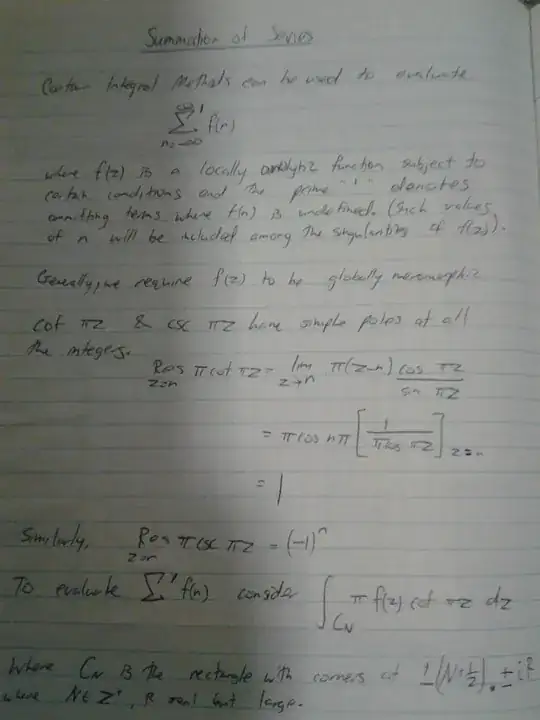 Summation of Series
Certain Integral Methods can be used to evaluate
∞
Σ' f(n)
n=-∞
where f(z) is a locally analytic function subject to
certain conditions and the prime "'" denotes
omitting terms where f(n) is undefined. (Such values
of n will be included among the singularities of f(z)).
Generally, we require f(z) to be globally meromorphic
cot πz & csc πz have simple poles at all
the integers.
Res π cot πz = lim π(z-n) cos πz / sin πz
z=n z→n
= π cos nπ [ 1 / π cos πz ] z=n
= 1
Similarly, Res π csc πz = (-1)^n
z=n
To evaluate Σ' f(n) consider ∫ π f(z) cot πz dz
C_N
Where C_N is the rectangle with corners at ±(N+½) ± iR
where N ∈ Z⁺, R real but large.